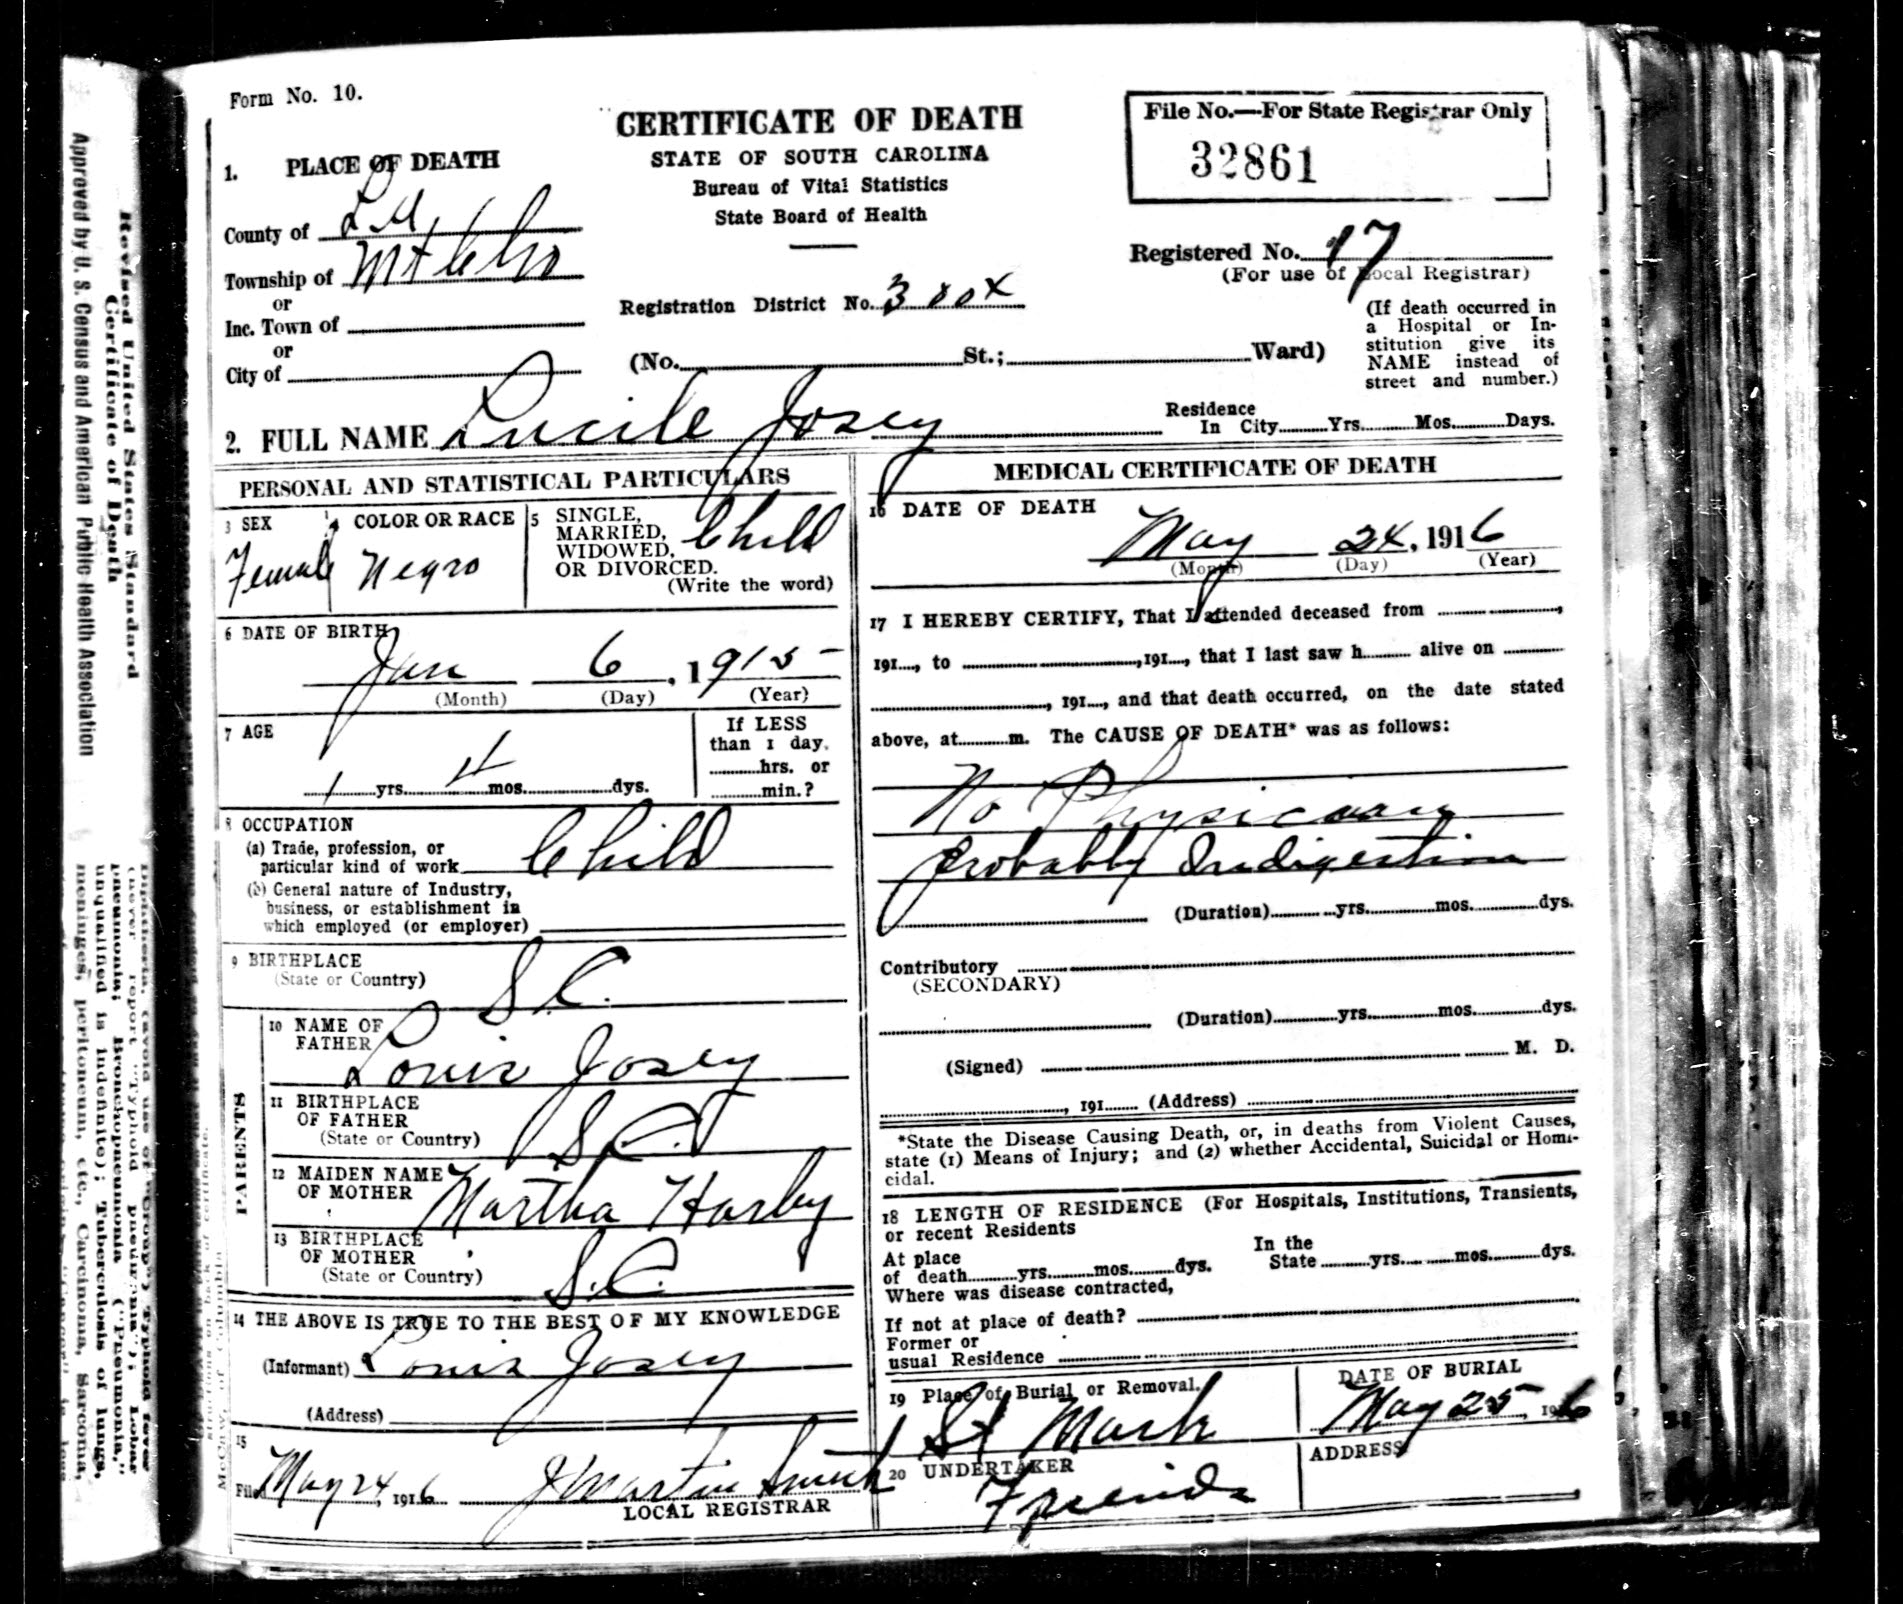 Form No. 10.
CERTIFICATE OF DEATH
STATE OF SOUTH CAROLINA
Bureau of Vital Statistics
State Board of Health
File No.—For State Registrar Only
32861
1. PLACE OF DEATH
County of Lee
Township of Mt Clio
or
Inc. Town of
or
City of
Registered No. 17
(For use of Local Registrar)
Registration District No. 3804
(No. St.; Ward)
(If death occurred in
a Hospital or In-
stitution give its
NAME instead of
street and number.)
2. FULL NAME Lucile Josey
Residence
In City Yrs. Mos. Days.
PERSONAL AND STATISTICAL PARTICULARS
3 SEX
Female
COLOR OR RACE
Negro
5 SINGLE,
MARRIED,
WIDOWED,
OR DIVORCED.
(Write the word)
Child
6 DATE OF BIRTH
Jan 6, 1915
(Month) (Day) (Year)
7 AGE
1 yrs. 4 mos. dys.
If LESS
than 1 day.
hrs. or
min.?
8 OCCUPATION
(a) Trade, profession, or
particular kind of work Child
(b) General nature of Industry,
business, or establishment in
which employed (or employer)
9 BIRTHPLACE
(State or Country) S.C.
PARENTS
10 NAME OF
FATHER Louis Josey
11 BIRTHPLACE
OF FATHER
(State or Country) S.C.
12 MAIDEN NAME
OF MOTHER Martha Harby
13 BIRTHPLACE
OF MOTHER
(State or Country) S.C.
14 THE ABOVE IS TRUE TO THE BEST OF MY KNOWLEDGE
(Informant) Louis Josey
(Address)
15
Filed May 24, 1916 J Martin Smith
LOCAL REGISTRAR
MEDICAL CERTIFICATE OF DEATH
16 DATE OF DEATH
May 24, 1916
(Month) (Day) (Year)
17 I HEREBY CERTIFY, That I attended deceased from ,
191 , to ,191 , that I last saw h alive on
, 191 , and that death occurred, on the date stated
above, at m. The CAUSE OF DEATH* was as follows:
No Physician
Probably Indigestion
(Duration) yrs. mos. dys.
Contributory
(SECONDARY)
(Duration) yrs. mos. dys.
(Signed) M. D.
, 191 (Address)
*State the Disease Causing Death, or, in deaths from Violent Causes,
state (1) Means of Injury; and (2) whether Accidental, Suicidal or Homi-
cidal.
18 LENGTH OF RESIDENCE (For Hospitals, Institutions, Transients,
or recent Residents
At place
of death yrs. mos. dys.
In the
State yrs. mos. dys.
Where was disease contracted,
If not at place of death?
Former or
usual Residence
19 Place of Burial or Removal.
St Mark
DATE OF BURIAL
May 25, 1916
20 UNDERTAKER
Friends
ADDRESS
Revised United States Standard
Certificate of Death
Approved by U. S. Census and American Public Health Association